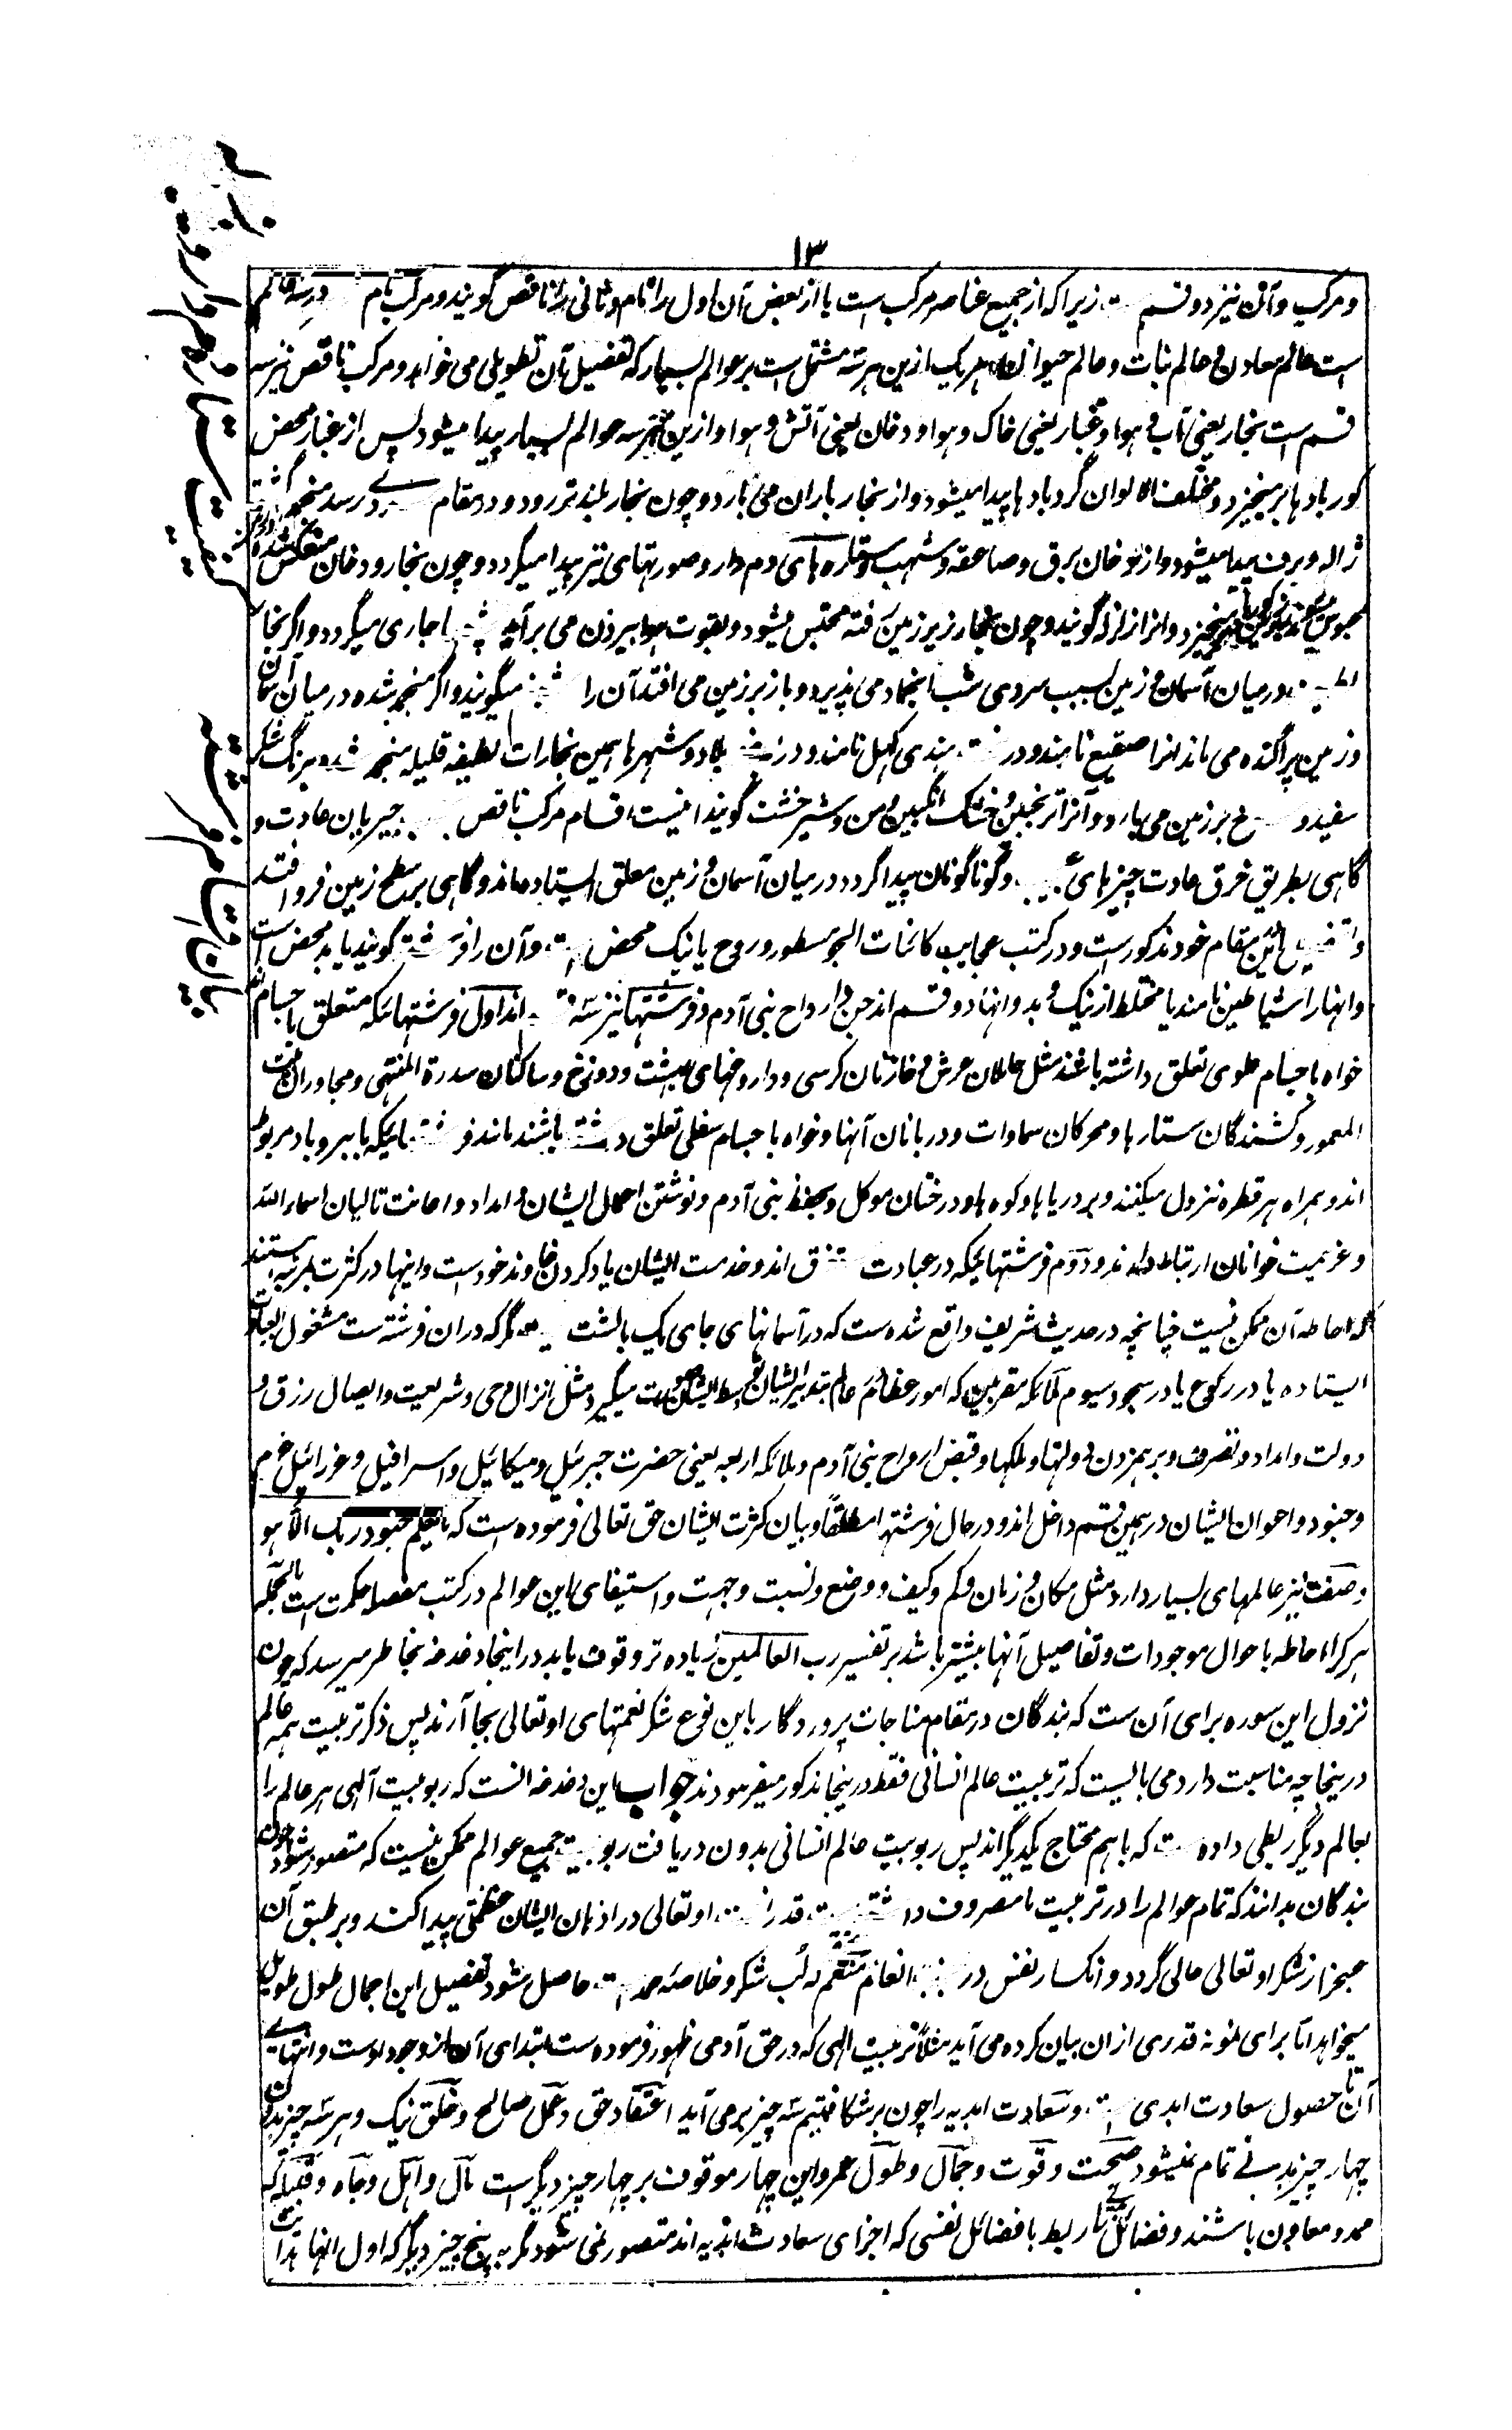 ۱۳
و مرکب و آن نیز دو قسم ست زیرا که از جمیع عناصر مرکب است یا از بعض آن اول را تام و ثانی را ناقص گویند و مرکب تام در سه عالم
است عالم معادن و عالم نبات و عالم حیوان و هر یک ازین هر سه مشتمل است بر عوالم بسیار که تفصیل آن تطویلی می خواهد و مرکب ناقص نیز سه
قسم است بخار یعنی آب و هوا و غبار یعنی خاک و هوا و دخان یعنی آتش و هوا و ازین هر سه عوالم بسیار پیدا میشود پس از غبار محض
کور بادها برمیخیزد و مختلف الالوان گردبادها پیدا میشود و از بخار باران می بارد و چون بخار بلند تر رود و در مقام سردی رسد منجمد گشته
ژاله و برف پیدا میشود و از دخان برق و صاعقه و شهب و ستاره های دم دار و صورتهای نیز پیدا میگردد و چون بخار و دخان منعکس شده
محبوس زمین برمیخیزد و انرا زلزله گویند و چون بخار زیر زمین رفته محتبس میشود و بقوت هوا بیرون می برآید چشمها جاری میگردد و اگر بخار
در میان آسمان و زمین بسبب سردی شب انجماد می پذیرد و باز بر زمین می افتد آن را شبنم میگویند و اگر منجمد شده در میان آسمان
و زمین پراگنده می ماند انرا صقیع نامند و در هندی کهل نامند و در بعض بلاد و شهرها همین بخارات لطیفه قلیله منجمد شده برنگ شکر
سفید و سرخ بر زمین می بارد و آنرا ترنجبین و خشک انگبین و من و شیر خشت گویند اینست اقسام مرکب ناقص عادت و
گاهی بطریق خرق عادت چیزهای گوناگونان پیدا گردد در میان آسمان و زمین معلق ایستاده ماند و گاهی بر سطح زمین فرو افتد
و تفصیل این بمقام خود مذکورست و در کتب عجایب کائنات الجو مسطور و روح یا نیک محض است و آن را فرشته گویند یا بد محض است
و انها را شیاطین نامند یا مختلط از نیک و بد و انها دو قسم اند جن و ارواح بنی آدم و فرشتها نیز سه قسم اند اول فرشتهائیکه متعلق باجسام اند
خواه باجسام علوی تعلق داشته باشند مثل حاملان عرش و خازنان کرسی و داروغهای بهشت و دوزخ و ساکنان سدرة المنتهی و مجاوران بیت
المعمور و کشندگان ستارها و محرکان سماوات و دربانان آنها و خواه باجسام سفلی تعلق داشته باشند مانند فرشتهائیکه با ابر و باد مربوط
اند و همراه هر قطره نزول میکنند و بر دریاها و کوه ها و درختان موکل و بحفظ بنی آدم و نوشتن اعمال ایشان و امداد و اعانت تالیان اسماء الله
و عزیمت خوانان ارتباط دارند و دوم فرشتهائیکه در عبادت مستغرق اند و خدمت ایشان یاد کردن خداوند خودست و اینها در کثرت بمرتبه هستند
که احاطه آن ممکن نیست چنانچه در حدیث شریف واقع شده ست که در آسمانهای جای یک بالشت نیست مگر که دران فرشته ست مشغول بعبادت
ایستاده یا در رکوع یا در سجود سیوم ملائکه مقربین که امور عظام عالم بتدبیر ایشان و توسط ایشان صورت میگیرد مثل انزال وحی و شریعت و ایصال رزق و
دولت و امداد و تصرف و برهم زدن دولتها و ملکها و قبض ارواح بنی آدم و ملائکه اربعه یعنی حضرت جبرئیل و میکائیل و اسرافیل و عزرائیل ع م
و جنود و اعوان ایشان در همین قسم داخل اند و در حال فرشتها مطلقا و بیان کثرت ایشان حق تعالی فرموده است که ما یعلم جنود ربک الا هو
و صفت نیز عالمهای بسیار دارد مثل مکان و زمان و کم و کیف و وضع و نسبت و جهت و استیفای این عوالم در کتب مفصله حکمت است بالجمله
هر کرا احاطه باحوال موجودات و تفاصیل آنها بیشتر باشد بر تفسیر رب العالمین زیاده تر وقوف یابد در اینجا دغدغه بخاطر میرسد که چون
نزول این سوره برای آن ست که بندگان در مقام مناجات پروردگار باین نوع شکر نعمتهای او تعالی بجا آرند پس ذکر تربیت همه عالم
درینجا چه مناسبت دارد می بایست که تربیت عالم انسانی فقط درینجا مذکور میفرمودند جواب این دغدغه انست که ربوبیت آلهی هر عالم را
بعالم دیگر ربطی داده ست که باهم محتاج یکدیگر اند پس ربوبیت عالم انسانی بدون دریافت ربوبیت جمیع عوالم ممکن نیست که متصور شود چون
بندگان بدانند که تمام عوالم را در تربیت ما مصروف داشته ست قدر نعمت او تعالی در اذهان ایشان عظمتی پیدا کند و بر طبق آن
عجز از شکر او تعالی حالی گردد و انکسار نفس در انعام منعم که لب شکر و خلاصه حمد است حاصل شود تفصیل این اجمال طول طویل
میخواهد اما برای نمونه قدری ازان بیان کرده می آید مثلا تربیت الهی که در حق آدمی ظهور فرموده ست ابتدای آن از وجود اوست و انتهای
آن تا حصول سعادت ابدی است و سعادت ابدیه را چون برشکافتیم سه چیز برمی آید اعتقاد حق و عمل صالح و خلق نیک و هر سه چیز بدون
چهار چیز بدنی تمام نمیشود صحت و قوت و جمال و طول عمر و این چهار موقوف بر چهار چیز دیگر است مال و اهل و جاه و قبیله که
ممد و معاون باشند و فضائل را ربط با فضائل نفسی که اجزای سعادت ابدیه اند متصور نمی شود مگر به پنج چیز دیگر که اول انها هدایت